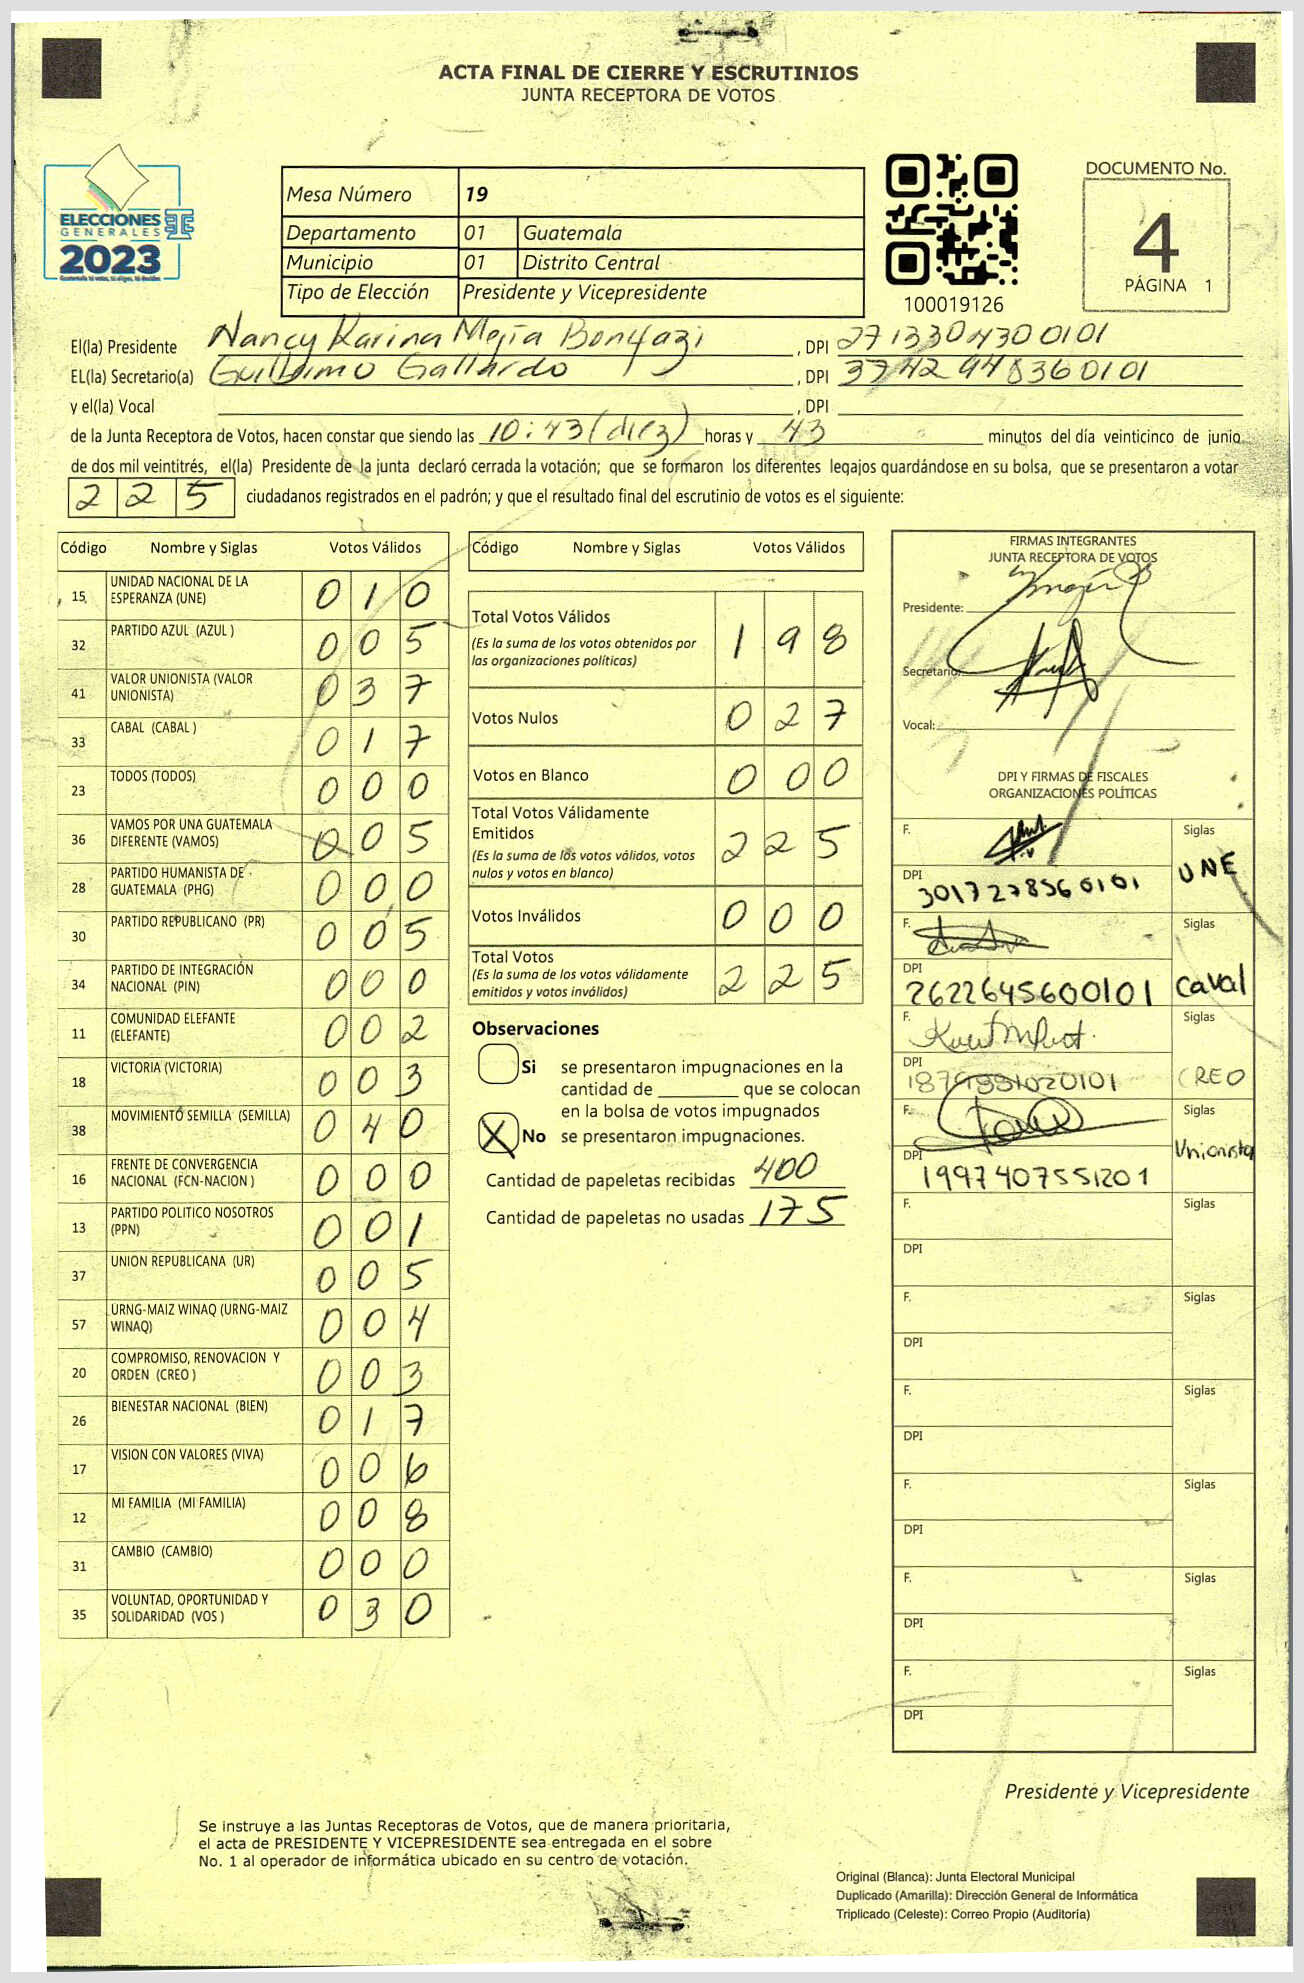 ACTA FINAL DE CIERRE Y ESCRUTINIOS
JUNTA RECEPTORA DE VOTOS
ELECCIONES
GENERALES
2023
Mesa Número 19
Departamento 01 Guatemala
Municipio 01 Distrito Central
Tipo de Elección Presidente y Vicepresidente
100019126
DOCUMENTO No.
4
PÁGINA 1
El(la) Presidente Nancy Karina Mejía Bonifazi, DPI 2713304300101
EL(la) Secretario(a) Guillermo Gallardo, DPI 3742948360101
y el(la) Vocal , DPI
de la Junta Receptora de Votos, hacen constar que siendo las 10:43 (diez) horas y 43 minutos del día veinticinco de junio
de dos mil veintitrés, el(la) Presidente de la junta declaró cerrada la votación; que se formaron los diferentes legajos guardándose en su bolsa, que se presentaron a votar
225 ciudadanos registrados en el padrón; y que el resultado final del escrutinio de votos es el siguiente:
Código Nombre y Siglas Votos Válidos
15 UNIDAD NACIONAL DE LA ESPERANZA (UNE) 010
32 PARTIDO AZUL (AZUL ) 005
41 VALOR UNIONISTA (VALOR UNIONISTA) 037
33 CABAL (CABAL ) 017
23 TODOS (TODOS) 000
36 VAMOS POR UNA GUATEMALA DIFERENTE (VAMOS) 005
28 PARTIDO HUMANISTA DE GUATEMALA (PHG) 000
30 PARTIDO REPUBLICANO (PR) 005
34 PARTIDO DE INTEGRACIÓN NACIONAL (PIN) 000
11 COMUNIDAD ELEFANTE (ELEFANTE) 002
18 VICTORIA (VICTORIA) 003
38 MOVIMIENTO SEMILLA (SEMILLA) 040
16 FRENTE DE CONVERGENCIA NACIONAL (FCN-NACION ) 000
13 PARTIDO POLITICO NOSOTROS (PPN) 001
37 UNION REPUBLICANA (UR) 005
57 URNG-MAIZ WINAQ (URNG-MAIZ WINAQ) 004
20 COMPROMISO, RENOVACION Y ORDEN (CREO ) 003
26 BIENESTAR NACIONAL (BIEN) 017
17 VISION CON VALORES (VIVA) 006
12 MI FAMILIA (MI FAMILIA) 008
31 CAMBIO (CAMBIO) 000
35 VOLUNTAD, OPORTUNIDAD Y SOLIDARIDAD (VOS ) 030
Código Nombre y Siglas Votos Válidos
Total Votos Válidos 198
(Es la suma de los votos obtenidos por
las organizaciones políticas)
Votos Nulos 027
Votos en Blanco 000
Total Votos Válidamente
Emitidos 225
(Es la suma de los votos válidos, votos
nulos y votos en blanco)
Votos Inválidos 000
Total Votos 225
(Es la suma de los votos válidamente
emitidos y votos inválidos)
Observaciones
Si se presentaron impugnaciones en la
cantidad de ________ que se colocan
en la bolsa de votos impugnados
X No se presentaron impugnaciones.
Cantidad de papeletas recibidas 400
Cantidad de papeletas no usadas 175
FIRMAS INTEGRANTES
JUNTA RECEPTORA DE VOTOS
Presidente:
Secretario:
Vocal:
DPI Y FIRMAS DE FISCALES
ORGANIZACIONES POLÍTICAS
F. Siglas
DPI 3017278560101 UNE
F. Siglas
DPI 2622645600101 Caval
F. Siglas
DPI 1879991020101 CREO
F. Siglas
DPI 1997407551201 Unionista
F. Siglas
DPI
F. Siglas
DPI
F. Siglas
DPI
F. Siglas
DPI
F. Siglas
DPI
F. Siglas
DPI
Presidente y Vicepresidente
Se instruye a las Juntas Receptoras de Votos, que de manera prioritaria,
el acta de PRESIDENTE Y VICEPRESIDENTE sea entregada en el sobre
No. 1 al operador de informática ubicado en su centro de votación.
Original (Blanca): Junta Electoral Municipal
Duplicado (Amarilla): Dirección General de Informática
Triplicado (Celeste): Correo Propio (Auditoría)